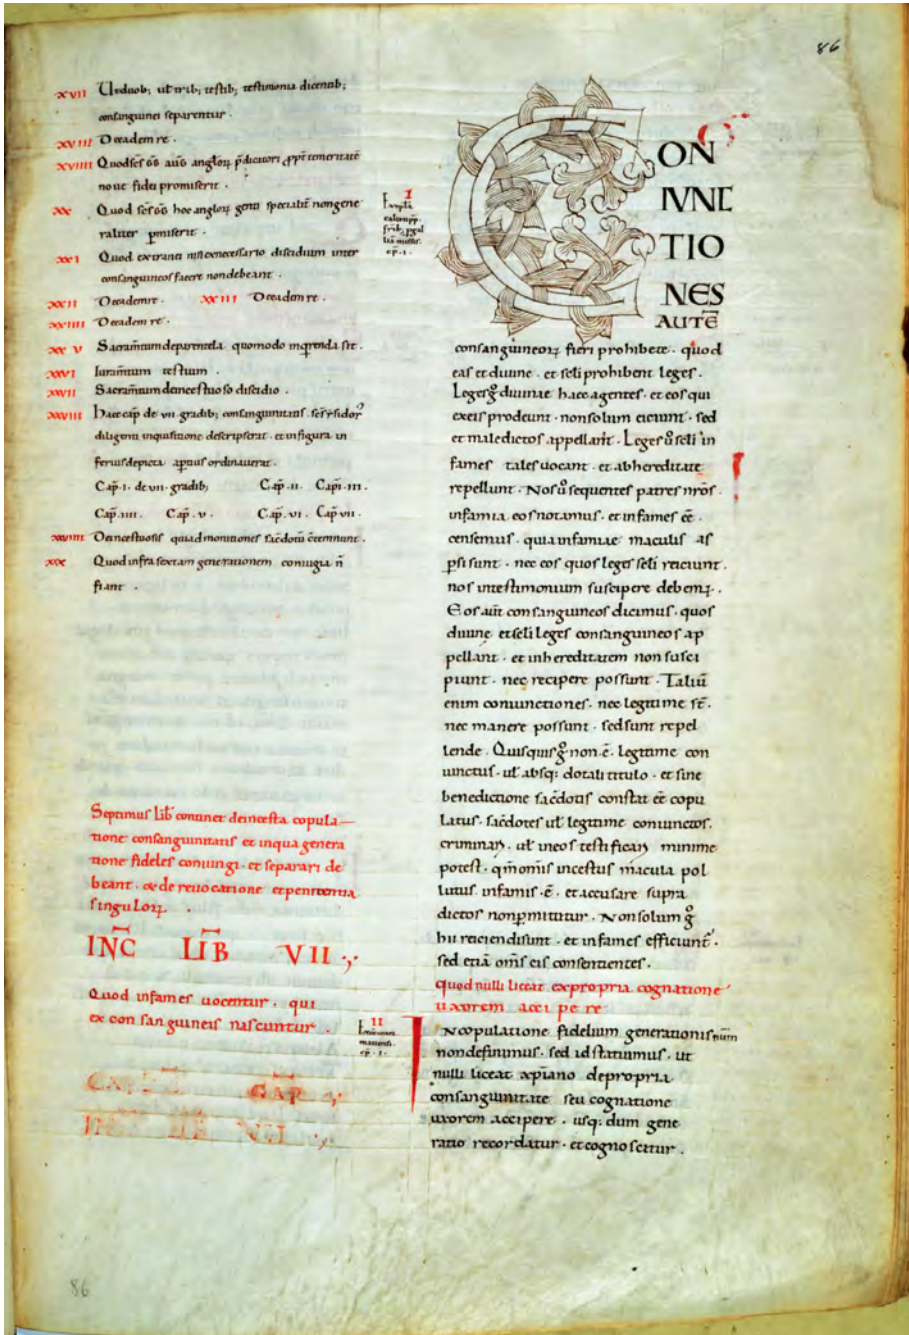 86
XVII Ut duob; ut trib; testib; testimonia dicentib;
consanguinei separentur .
XVIII De eadem re .
XVIIII Quod scs GG
no ut fidei promiserit .
XX Quod scs GG hoc angloꝝ genti specialit non gene
raliter pmiserit .
XXI Quod extranei nisi necessario discidium inter
consanguineos facere non debeant .
XXII De eadem re . XXIII De eadem re .
XXIIII De eadem re .
XXV Sacramtum de parentela quomodo inqrenda sit .
XXVI Iuramtum testium .
XXVII Sacramtum de incestuoso discidio .
XXVIII Haec cap de VII gradib; consanguinitatis
diligenti inquisitione descripserat . et in figura in
ferius depicta ordinauerat .
Cap . I . de VII . gradib; Cap . II . Cap . III .
Cap . IIII . Cap . V . Cap . VI . Cap VII .
XXVIIII De incestuosis qui admonitiones sacdotu ctemnunt .
XXX Quod infra sextam generationem coniugia n
fiant .
Septimus lib continet de incesta copula—
tione consanguinitatis et in qua genera
tione fideles coniungi . et separari de
beant . & de reuocatione et penitentia
singuloꝝ .
INC LIB VII
Quod infames uocentur . qui
ex consanguineis nascuntur .
CAP
I
CONIUNCTIONES
AUTE
consanguineoꝝ fieri prohibete . quod
eas et diuine . et scli prohibent leges .
Leges g diuinae haec agentes . et eos qui
ex eis prodeunt . non solum eiciunt . sed
et maledictos appellant . Leges u scli in
fames tales uocant . et ab hereditate
repellunt . Nos u sequentes patres nros .
infamia eos notamus . et infames ee .
censemus . quia infamiae maculis as
psi sunt . nec eos quos leges scli reiciunt .
nos in testimonium suscipere debemꝰ .
Eos aut consanguineos dicimus . quos
diuine et scli leges consanguineos ap
pellant . et in hereditatem non susci
piunt . nec recipere possunt . Taliu
enim coniunctiones . nec legitime st .
nec manere possunt . sed sunt repel
lende . Quisquis g non . e . legitime con
iunctus . ut absq; dotali titulo . et sine
benedictione sacdotis constat ee copu
latus . sacdotes ut legitime coniunctos .
criminari . ut in eos testificari minime
potest . qm omis incestus macula pol
lutus infamis . e . et accusare supra
dictos non pmittitur . Non solum g
hii reiciendi sunt . et infames efficiunt .
sed etia oms eis consentientes .
quod nulli liceat ex propria cognatione
uxorem accipere
II
IN copulatione fidelium generationis num
non definimus . sed id statuimus . ut
nulli liceat xpiano de propria
consanguinitate seu cognatione
uxorem accipere . usq; dum gene
ratio recordatur . et cognoscitur .
86